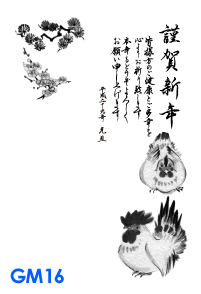 謹賀新年
皆様方のご健康とご多幸を
心よりお祈り致します
本年もどうぞよろしく
お願い申し上げます
平成二十九年 元旦
GM16